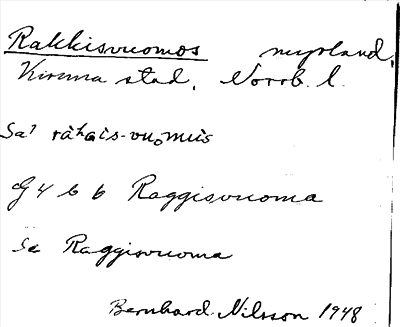 Rakkisvuomos myrland,
Kiruna stad, Norrb. l.
Sa' råhais-vuomus
G 4 b b Raggisvuoma
Se Raggisvuoma
Bernhard Nilsson 1948